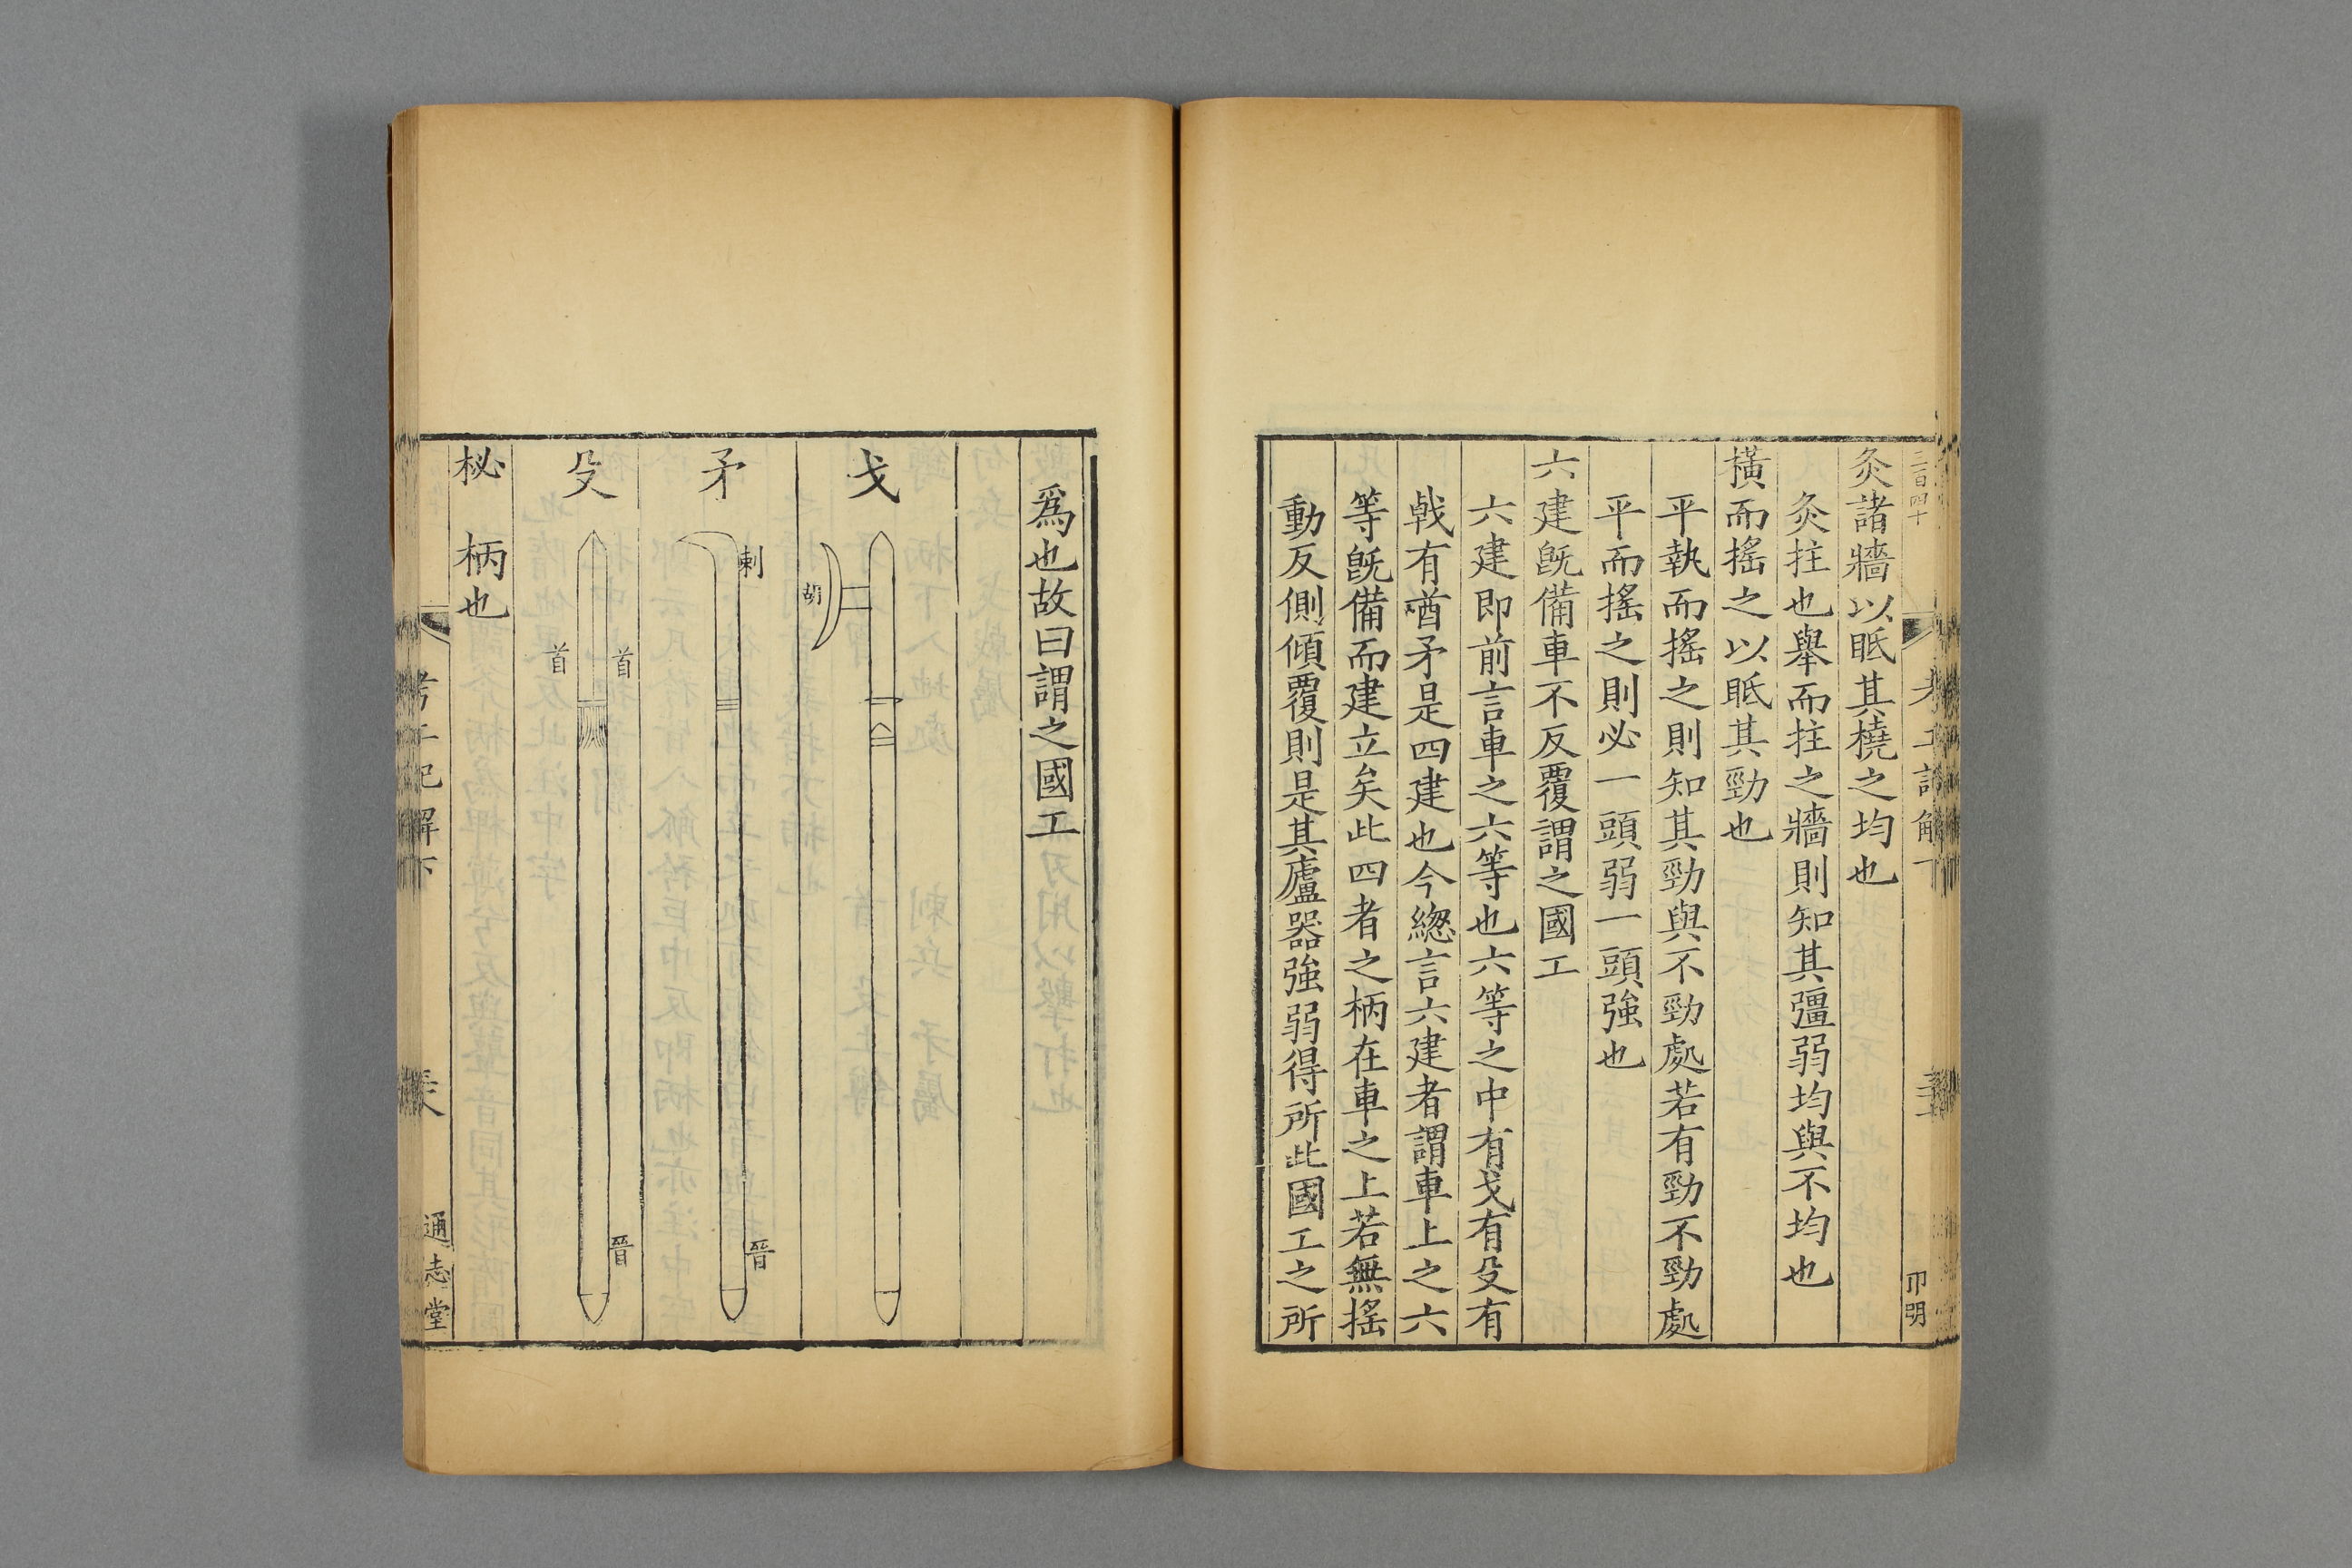 三百四十
考工記解下
卬明
灸諸牆以眡其橈之均也
灸拄也舉而拄之牆則知其彊弱均與不均也
橫而搖之以眡其勁也
平執而搖之則知其勁與不勁處若有勁不勁處
平而搖之則必一頭弱一頭強也
六建旣備車不反覆謂之國工
六建即前言車之六等也六等之中有戈有殳有
戟有酋矛是四建也今緫言六建者謂車上之六
等旣備而建立矣此四者之柄在車之上若無搖
動反側傾覆則是其廬器強弱得所此國工之所
爲也故曰謂之國工
戈
胡
矛
刺
晉
殳
首
首
晉
柲 柄也
考工記解下
通志堂